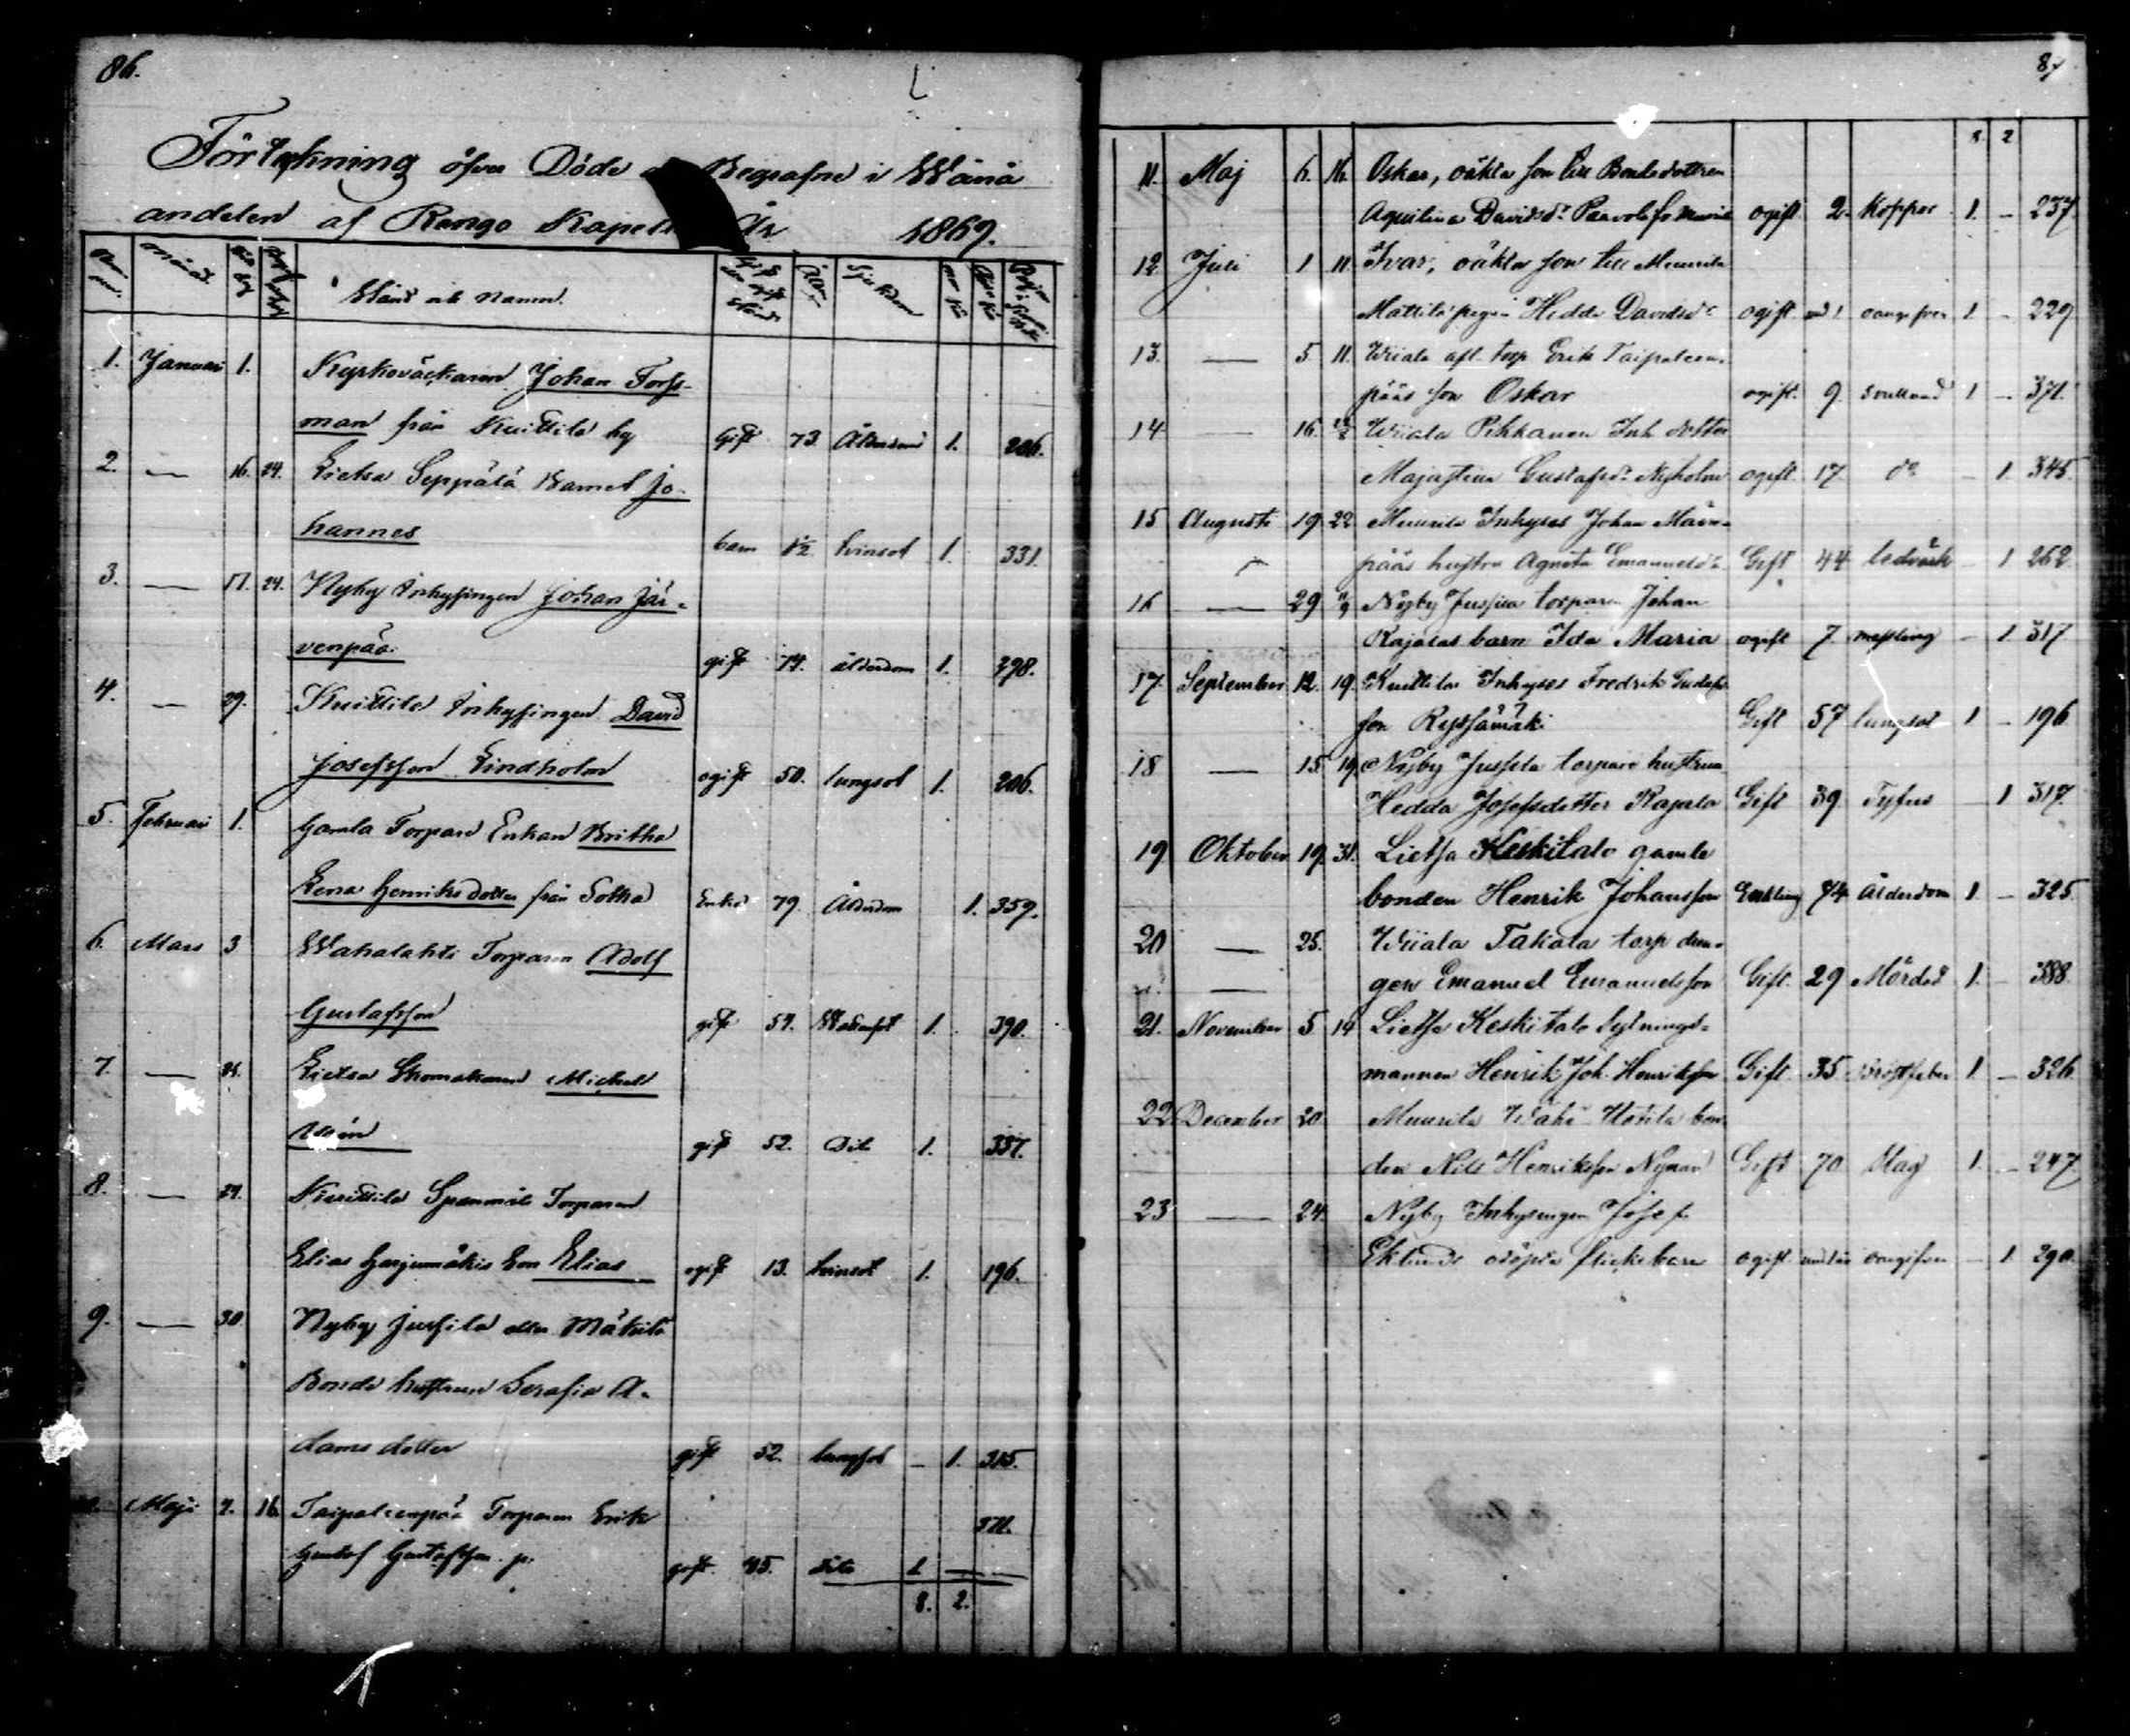 86.
Förtekning öfver Döde Begrafne i Wånå
andelen af Kango Kapell År 1869.
Månad Stånd och Namn. Ålder Sjukdom
1. Januari 1. Kyrkoväcktaren Johan Forss-
man från Kuittila by Gift 73. Ålderdom 1. 206.
2. — 16. 24. Lietsa Seppälä Barnet Jo-
hannes barn 1/2 tvinsot 1. 331.
3. — 17. 24. Nyby Inhysingen Johan Jär-
venpää. gift 74. ålderdom 1. 298.
4. — 29. Kuittila Inhysingen David
Josefsson Lindholm ogift 50. lungsot 1. 206.
5. Februari 1. Gamla Torpare Enkan Britha
Lena Henriksdotter från Sotka Enka 79. Ålderdom 1. 359.
6. Mars 3 Wahalahti Torparen Adolf
Gustafsson gift 59. Wattusot 1. 390.
7. — Lietsa Michel
gift 52. Dito 1. 337.
8. — 29. Kuittila Torparen
Elias Harjumäkis Son Elias ogift 13. tvinsot 1. 196.
9. — 30. Nyby Jussila eller Mäkilä
Bonde hustrun Serafia A-
dams dotter gift 52. lungsot — 1. 315.
Maji 7. 16. Taipaleenpää Torparen Erik 371.
Gustaf Gustafsson gift 45. dito 1 —
8. 2.
87
8 2
11. Maj 6. 16. Oskar, oäkta son till Bondedottren
Aquilina Davidsdr Paavola fr Muurila ogift 2. Koppor 1. — 237
12 Juli 1 11 Ivar, oäkta son till Muurila
Mattila pigan Hedda Davidsdr ogift und 1 oangifven 1. — 229
13. — 5 11. Wiiala afl. torp Erik Taipaleen-
pääs son Oskar ogift. 9. 1 — 371.
14 — 16. Wiiala Pihkanen Inh dotter
Majastina Gustafsdr Nyholm ogift. 17. do — 1. 345.
15 Augusti 19 22 Muurila Inhyses Johan Mäen-
pääs hustru Agneta Emanuelsdr Gift 44 ledvärk — 1 262
16 — 29 Nyby Jussila torparen Johan
Rajalas barn Ida Maria ogift 7. messling — 1. 317
17. September 12. 19. Kuittila Inhyses Fredrik Gustafs-
son Ryssämäki Gift 57 lungsot 1 — 196
18 — 15 19. Nyby Jussila torpare hustrun
Hedda Josefsdotter Rajala Gift 39 Tyfus — 1 317.
19 Oktober 19. 31. Lietsa Keskitalo gamle
bonden Henrik Johansson Enkling 74 Ålderdom 1. — 325
20 — 25. Wiiala Takala torp dren-
gen Emanuel Emanuelsson Gift. 29 Mördad 1. — 388
21. November 5 14 Lietsa Keskitalo Sytnings-
mannen Henrik Joh. Henriksson Gift 35. Bröstfeber 1. — 326
22 December 20 Muurila Wähä Hotila bon-
den Nils Henriksson Nyman Gift 70 Slag 1. — 247
23 — 24. Nyby Inhysingen Josef
Eklunds odöpta flickebarn ogift oangifven — 1. 290.